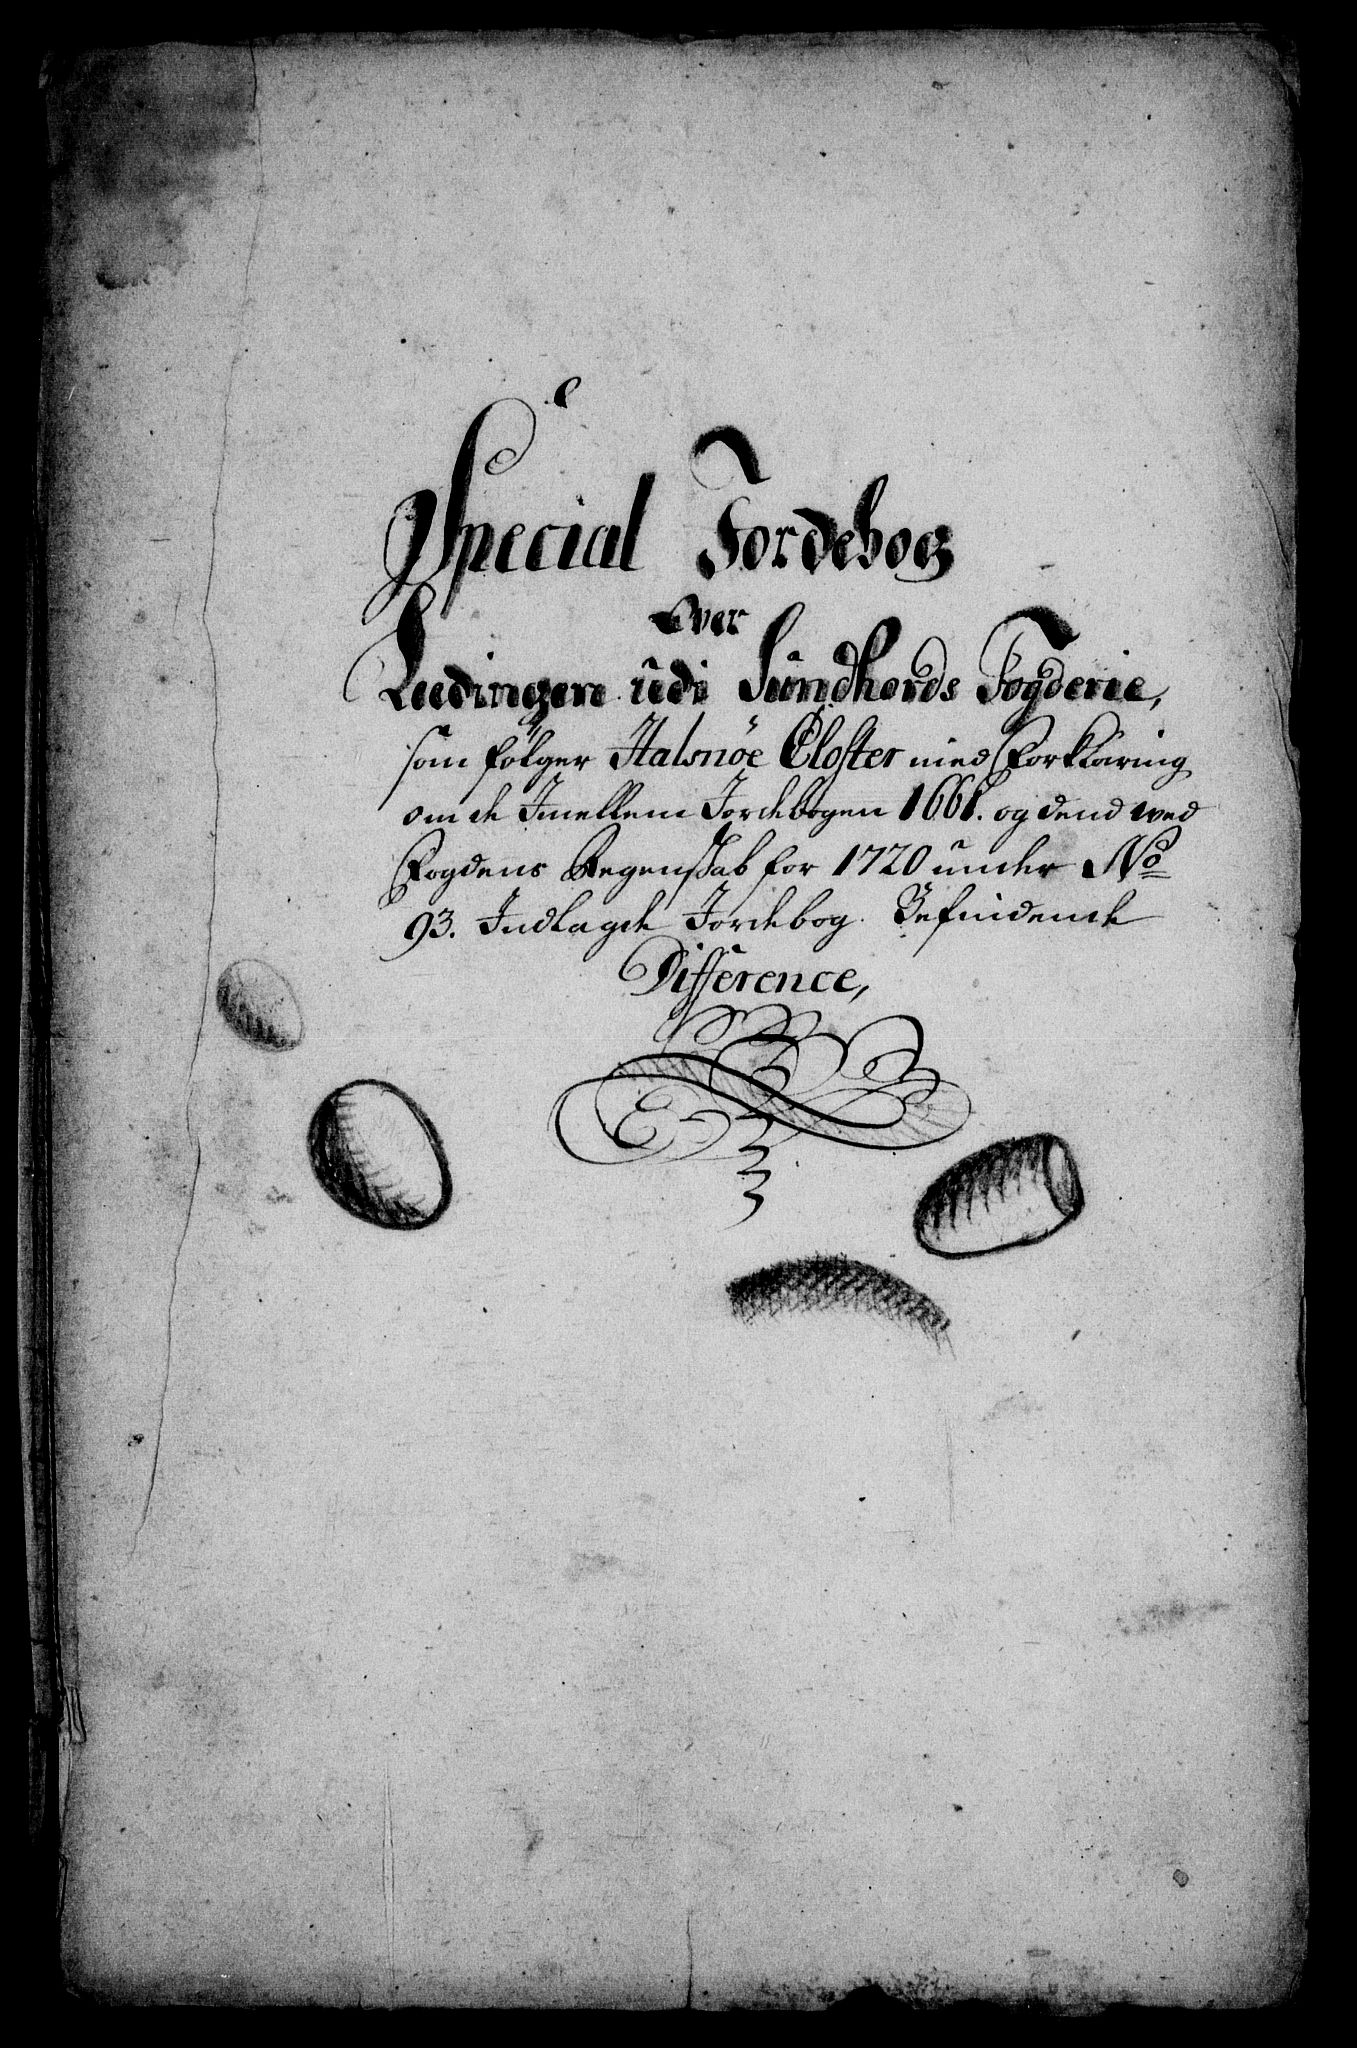 Special Jordebog
Over
Leedingen udi Sundhords Fogderie,
som følger Halsnøe Closter med Forklaring
om de Imellem Jordebogen 1661. og dend wed
Fogdens Regenskab for 1720 under No
93. Indlagde Jordebog Befindende
Difference,